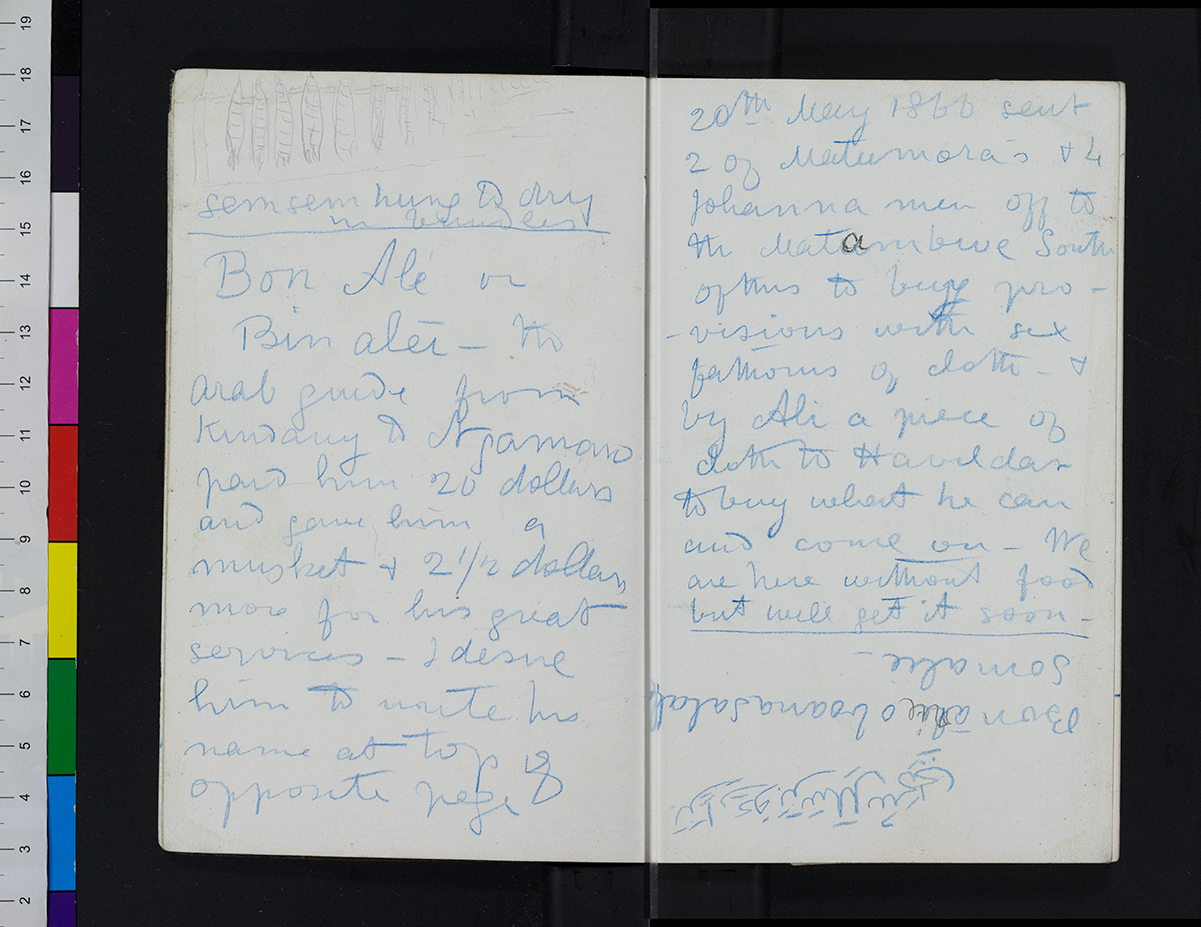 semsem hung to dry
in bundles
Bon Alé or
Bin aléi - the
arab guide from
Kindany to Ngomano
paid him 20 dollars
and gave him a
musket & 2 1/2 dollars
more for his great
services - I desire
him to write his
name at top of
opposite page
20th May 1866 sent
2 of Matumora's & 4
Johanna men off to
the Matambwe South
of this to buy pro-
-visions with six
fathoms of cloth - &
by Ali a piece of
cloth to Havildar
to buy what he can
and come on - We
are here without food
but will get it soon -
Bon alie
Somalie -